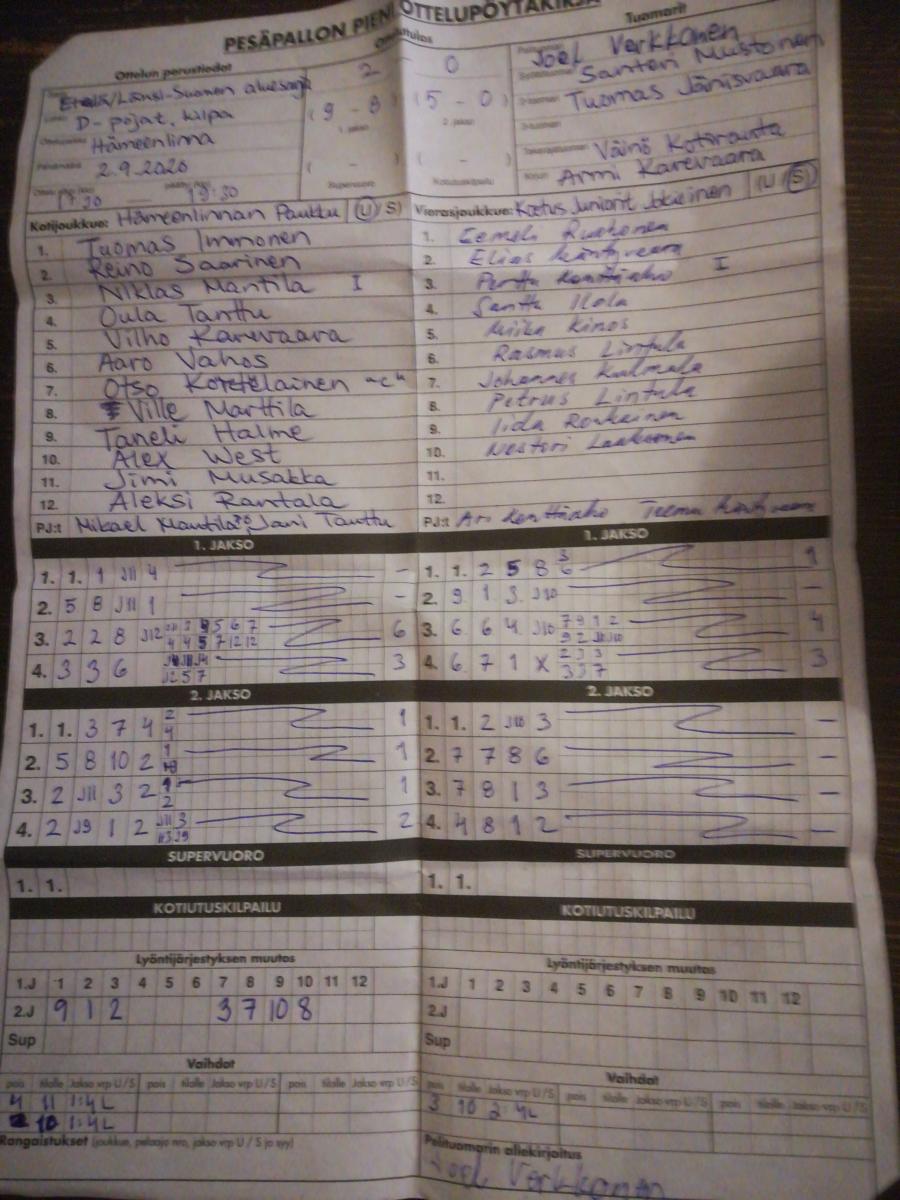 PESÄPALLON PIENI OTTELUPÖYTÄKIRJA
Ottelun perustiedot
Ottelutulos
Tuomarit
Etelä/Länsi-Suomen aluesarja
D-pojat, kilpa
Hämeenlinna
2.9.2020
17:30 — 19:30
2 0
(9 - 8) (5 - 0)
1. jakso 2. jakso
( - ) ( - )
Supervuoro Kotiutuskilpailu
Joel Verkkonen
Santeri Mustonen
Tuomas Jänisvaara
Väinö Kotiranta
Armi Karevaara
Kotijoukkue: Hämeenlinnan Paukku (U/S)
1. Tuomas Immonen
2. Reino Saarinen
3. Niklas Mantila I
4. Oula Tanttu
5. Vilho Karevaara
6. Aaro Vahos
7. Otso "c"
8. Ville Marttila
9. Taneli Halme
10. Alex West
11. Jimi Musakka
12. Aleksi Rantala
PJ:t Mikael Mantila Jani Tanttu
Vierasjoukkue: Koetus Juniorit Jokioinen (U/S)
1. Eemeli
2. Elias
3. Perttu I
4. Santtu Ilola
5. Miika Kinos
6. Rasmus Lintula
7. Johannes Kulmala
8. Petrus Lintula
9. Iida
10. Nestori Laaksonen
11.
12.
PJ:t Teemu
1. JAKSO
1. 1. 1 J11 4 –
2. 5 8 J11 1 –
3. 2 2 8 J12 6
4. 3 3 6 3
1. JAKSO
1. 1. 2 5 8 3 6 1
2. 9 1 3 J10 –
3. 6 6 4 J10 7 9 1 2 4
4. 6 7 1 X 2 3 3 3 3 7 3
2. JAKSO
1. 1. 3 7 4 2 4 1
2. 5 8 10 2 1 1
3. 2 J11 3 2 1 2 1
4. 2 J9 1 2 J11 3 2
2. JAKSO
1. 1. 2 J10 3 –
2. 7 7 8 6 –
3. 7 8 1 3 –
4. 4 8 1 2 –
SUPERVUORO
1. 1.
SUPERVUORO
1. 1.
KOTIUTUSKILPAILU
KOTIUTUSKILPAILU
Lyöntijärjestyksen muutos
1.J 1 2 3 4 5 6 7 8 9 10 11 12
2.J 9 1 2 3 7 10 8
Sup
Lyöntijärjestyksen muutos
1.J 1 2 3 4 5 6 7 8 9 10 11 12
2.J
Sup
Vaihdot
pois tilalle Jakso vrp U/S pois tilalle Jakso vrp U/S pois tilalle Jakso vrp U/S
4 11 1:4L
10 1:4L
Vaihdot
pois tilalle Jakso vrp U/S pois tilalle Jakso vrp U/S pois tilalle Jakso vrp U/S
3 10 2:4L
Rangaistukset (joukkue, pelaaja nro, jakso vrp U / S ja syy)
Pelituomarin allekirjoitus
Joel Verkkonen